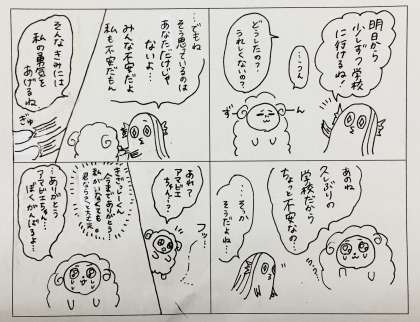 明日から
少しずつ学校
に行けるね!
…うん
どうしたの?
うれしくないの?
ずーん
あのね
久しぶりの
学校だから
ちょっと不安なの…
…そっか
そうだよね
…でもね
そう思っているのは
あなただけじゃ
ないよ…
みんな不安だよ
私も不安だもん
そんなきみには
私の勇気を
あげるね
ぎゅ
フッ…
あれ?
アマビエ
ちゃん…?
今までありがとう…
私がいなくても
君ならきっと大丈夫
…ありがとう
アマビエちゃん
ぼくがんばるよ…